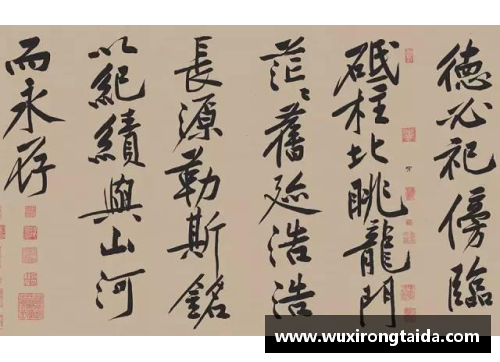 德必祀傍臨
砥柱北眺龍門
茫〻舊迹浩浩
長源勒斯銘
以紀績與山河
而永存
www.wuxirongtaida.com